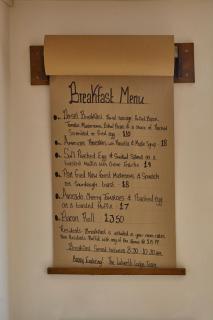 Breakfast Menu
Breakfast
Tomato Mushrooms, Baked Beans & a choice of Poached
Scrambled or fried egg £10
American Pancakes with & Maple Syrup £8
Soft Poached Egg & Smoked Salmon on a
toasted Muffin with Creme Fraiche £9
Pan Fried New Forest Mushrooms & Spinach
on Sourdough toast £8
Avocado, Cherry Tomatoes & Poached egg
on a toasted Muffin £7
Bacon Roll £3.50
Residents Breakfast is included in your room rates
Non Residents
Breakfast Served between 8.30 - 10.30 am